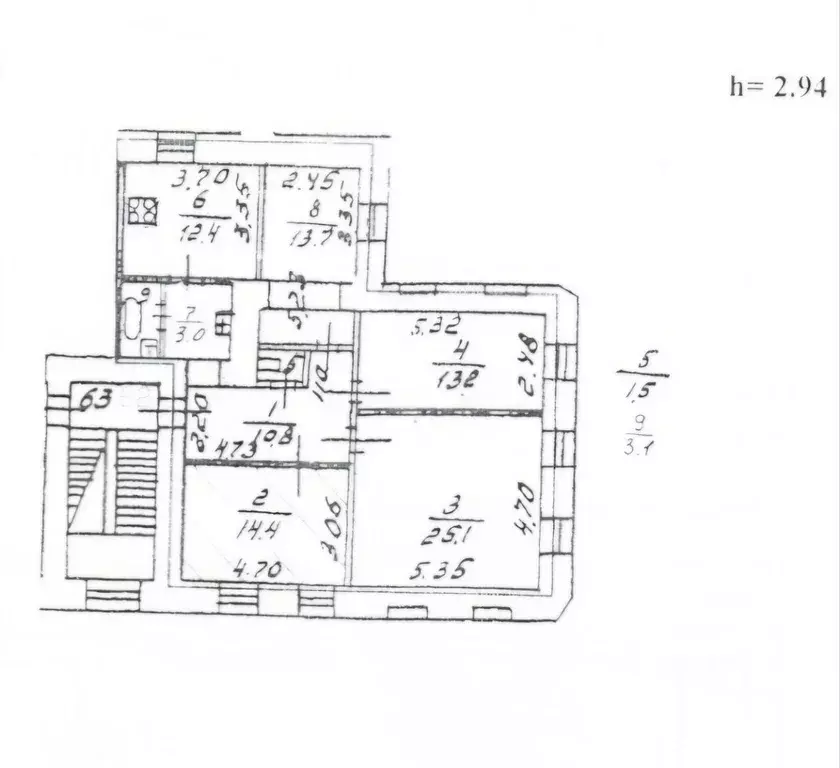 h= 2.94
3.70
6
12.4
3.35
2.45
8
13.7
3.35
9
7
3.0
5.32
4
13.2
2.48
5
1.5
9
3.1
63
5
1a
1
10.8
2.20
4.73
2
14.4
3.06
4.70
3
25.1
4.70
5.35